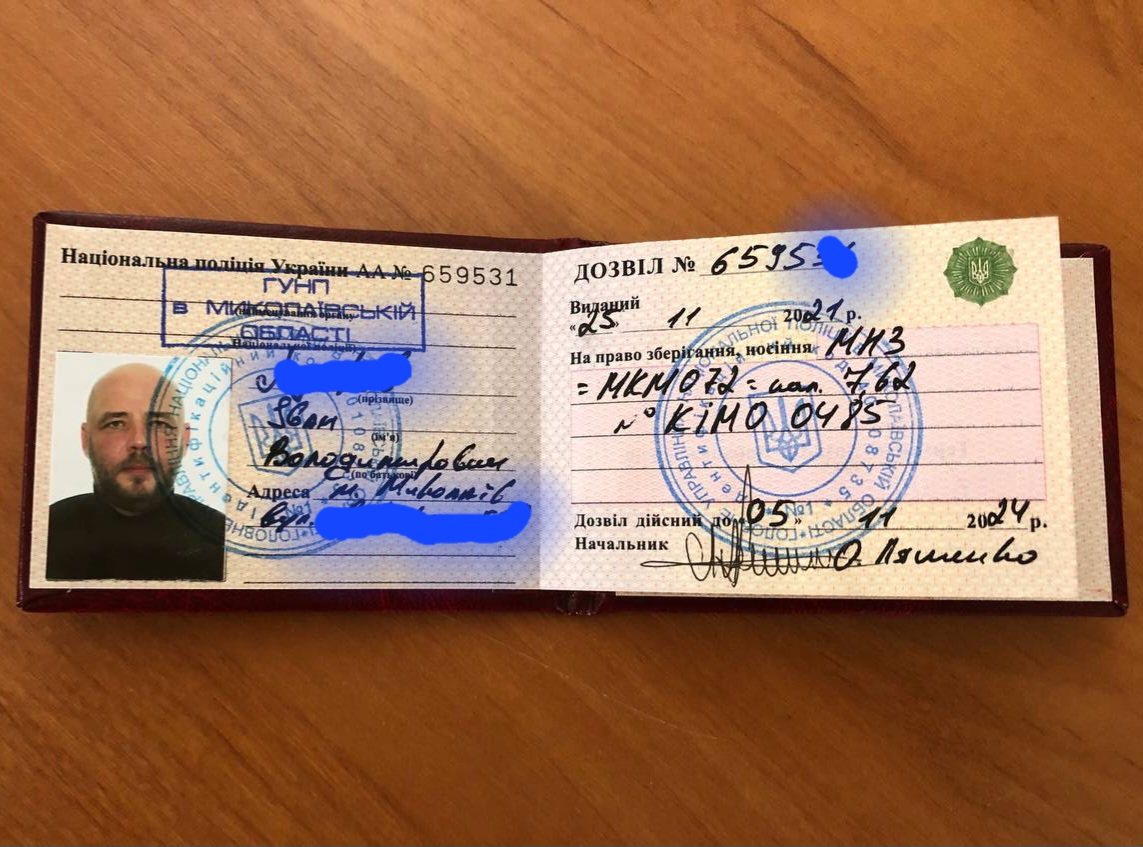 Національна поліція України АА № 659531
ГУНП
в МИКОЛАЇВСЬКІЙ
ОБЛАСТІ
(прізвище)
Іван
(ім'я)
Володимирович
(по батькові)
Адреса м. Миколаїв
вул.
ДОЗВІЛ № 65953
Виданий
«25» 11 2021 р.
На право зберігання, носіння МНЗ
= МКМ 072 = кал. 7,62
№ КІМО 0485
Дозвіл дійсний до «05» 11 2024 р.
Начальник О. Ляшенко